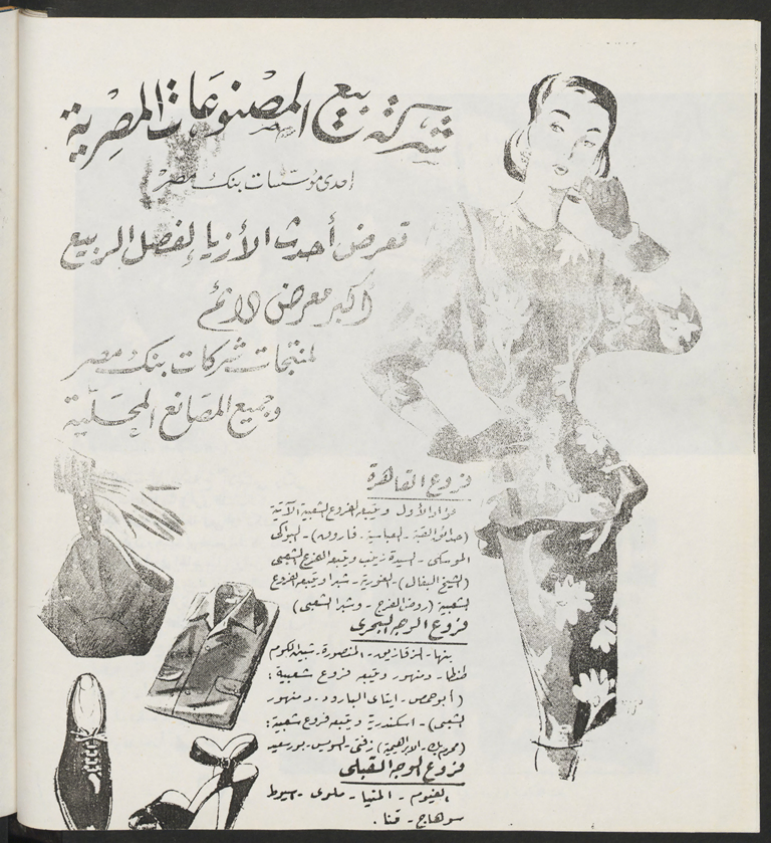 شركة بيع المصنوعات المصرية
إحدى مؤسسات بنك مصر
تعرض أحدث الأزياء لفصل الربيع
أكبر معرض دائم
لمنتجات شركات بنك مصر
وجميع المصانع المحلية
فروع القاهرة
فؤاد الأول ويتبعه الفروع الشعبية الآتية
(حدائق القبة - العباسية - فاروق) - البواكى
الموسكى - السيدة زينب ويتبعه الفرع الشعبى
(الشيخ البغال) - الغورية - شبرا ويتبعه الفروع
الشعبية (روض الفرج - وشبرا الشعبى)
فروع الوجه البحرى
بنها - الزقازيق - المنصورة - شبين الكوم
طنطا - دمنهور ويتبعه فروع شعبية :
(أبو حمص - ايتاى البارود - ودمنهور
الشعبى) - اسكندرية ويتبعه فروع شعبية :
(محرم بك - الابراهيمية) زفتى - السويس - بورسعيد
فروع الوجه القبلى
الفيوم - المنيا - ملوى - اسيوط
سوهاج - قنا .